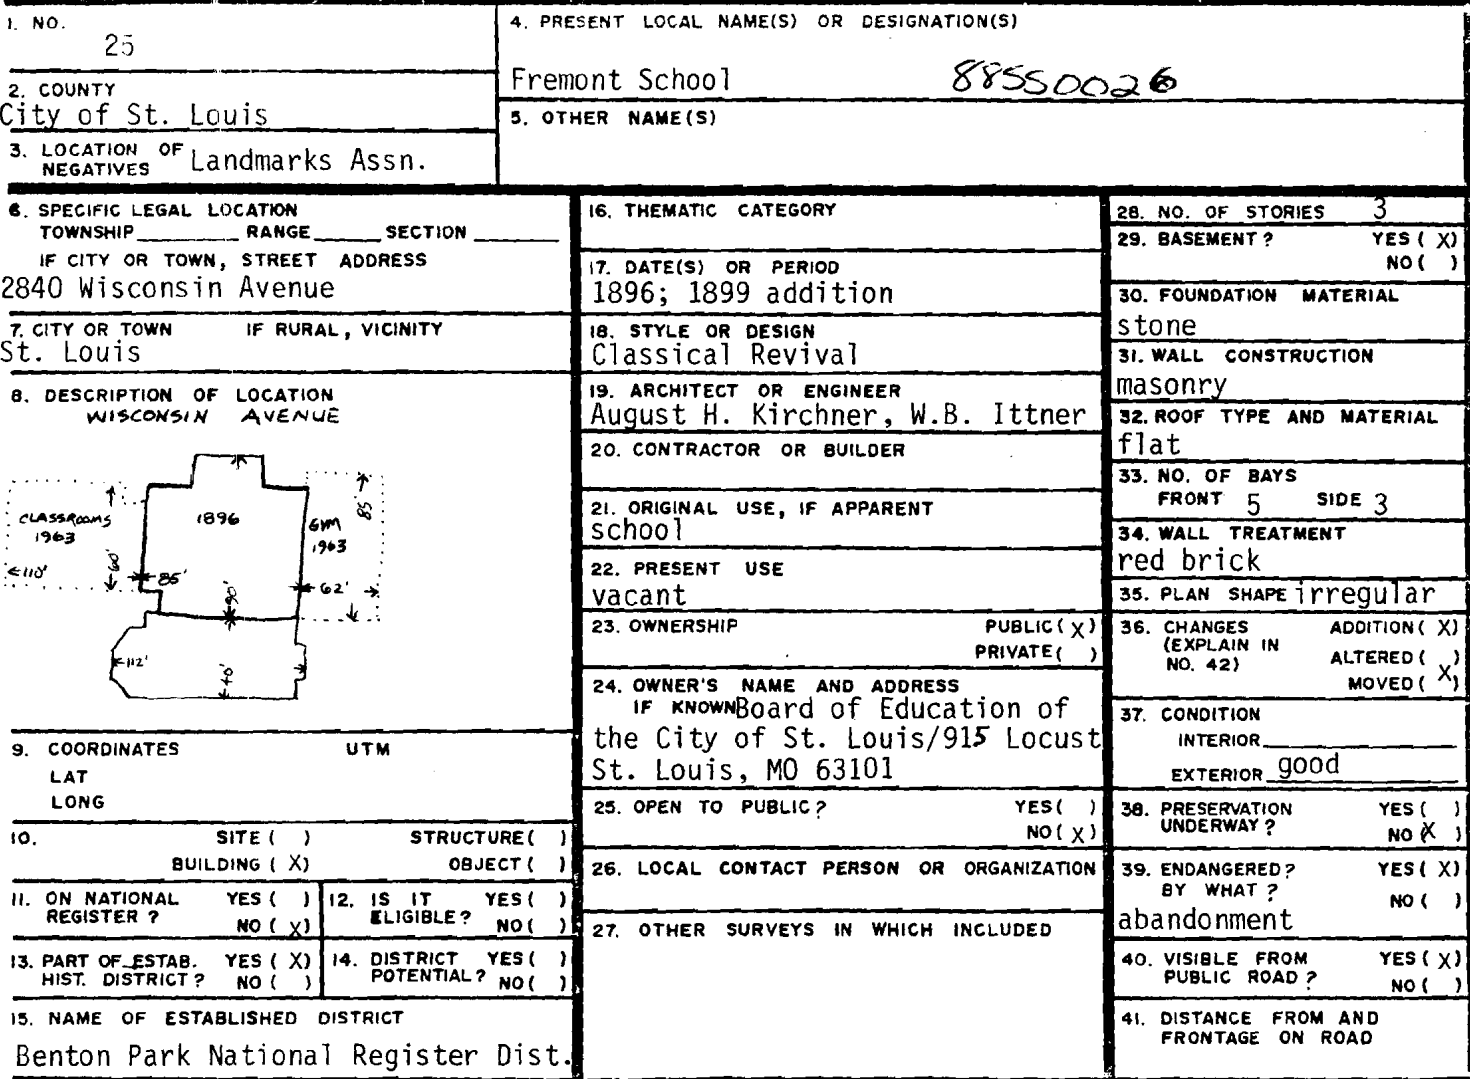 1. NO.
25
2. COUNTY
City of St. Louis
3. LOCATION OF NEGATIVES Landmarks Assn.
4. PRESENT LOCAL NAME(S) OR DESIGNATION(S)
Fremont School 88SS0026
5. OTHER NAME(S)
6. SPECIFIC LEGAL LOCATION
TOWNSHIP RANGE SECTION
IF CITY OR TOWN, STREET ADDRESS
2840 Wisconsin Avenue
7. CITY OR TOWN IF RURAL, VICINITY
St. Louis
8. DESCRIPTION OF LOCATION
WISCONSIN AVENUE
CLASSROOMS
1963
1896
GYM
1963
85'
60'
110'
85'
62'
90'
112'
40'
9. COORDINATES UTM
LAT
LONG
10. SITE ( ) STRUCTURE ( )
BUILDING ( X) OBJECT ( )
11. ON NATIONAL REGISTER ? YES ( )
NO ( X)
12. IS IT ELIGIBLE? YES ( )
NO ( )
13. PART OF ESTAB. HIST. DISTRICT? YES ( X)
NO ( )
14. DISTRICT POTENTIAL? YES ( )
NO ( )
15. NAME OF ESTABLISHED DISTRICT
Benton Park National Register Dist.
16. THEMATIC CATEGORY
17. DATE(S) OR PERIOD
1896; 1899 addition
18. STYLE OR DESIGN
Classical Revival
19. ARCHITECT OR ENGINEER
August H. Kirchner, W.B. Ittner
20. CONTRACTOR OR BUILDER
21. ORIGINAL USE, IF APPARENT
school
22. PRESENT USE
vacant
23. OWNERSHIP PUBLIC ( X)
PRIVATE ( )
24. OWNER'S NAME AND ADDRESS
IF KNOWN Board of Education of
the City of St. Louis/915 Locust
St. Louis, MO 63101
25. OPEN TO PUBLIC? YES ( )
NO ( X)
26. LOCAL CONTACT PERSON OR ORGANIZATION
27. OTHER SURVEYS IN WHICH INCLUDED
28. NO. OF STORIES 3
29. BASEMENT? YES ( X)
NO ( )
30. FOUNDATION MATERIAL
stone
31. WALL CONSTRUCTION
masonry
32. ROOF TYPE AND MATERIAL
flat
33. NO. OF BAYS
FRONT 5 SIDE 3
34. WALL TREATMENT
red brick
35. PLAN SHAPE irregular
36. CHANGES ADDITION ( X)
(EXPLAIN IN NO. 42) ALTERED ( )
MOVED ( X)
37. CONDITION
INTERIOR
EXTERIOR good
38. PRESERVATION UNDERWAY? YES ( )
NO ( X )
39. ENDANGERED? YES ( X)
BY WHAT? NO ( )
abandonment
40. VISIBLE FROM PUBLIC ROAD? YES ( X)
NO ( )
41. DISTANCE FROM AND
FRONTAGE ON ROAD